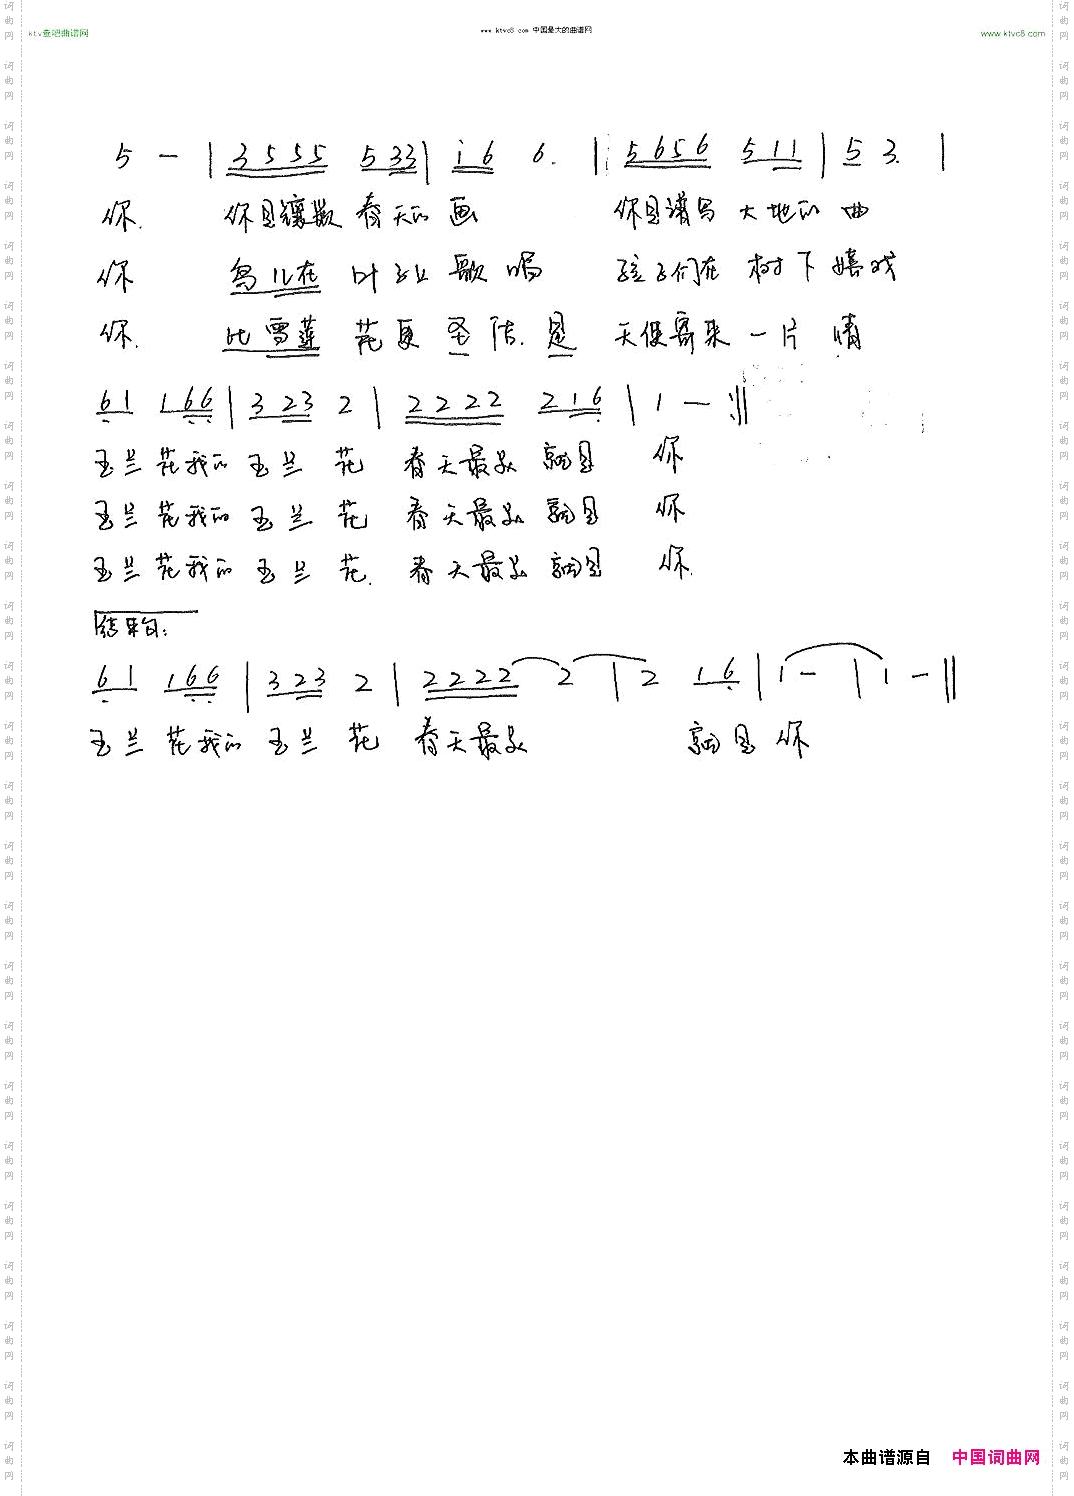 ktv查吧曲谱网 www.ktvc8.com 中国最大的曲谱网 www.ktvc8.com
5 — | 3 5 5 5 5 3 3 | i 6 6. | 5 6 5 6 5 1 1 | 5 3. |
你. 你是镶嵌春天的画 你是谱写大地的曲
你 鸟儿在叶子上歌唱 孩子们在树下嬉戏
你. 比雪莲花更圣洁.是 天使寄来一片情
6 1 1 6 6 | 3 2 3 2 | 2 2 2 2 2 1 6 | 1 — :||
玉兰花我的玉兰花 春天最美就是 你
玉兰花我的玉兰花 春天最美就是 你
玉兰花我的玉兰花. 春天最美就是 你.
结束句:
6 1 1 6 6 | 3 2 3 2 | 2 2 2 2 2 | 2 1 6 | 1 — | 1 — ||
玉兰花我的玉兰花 春天最美 就是你
本曲谱源自 中国词曲网